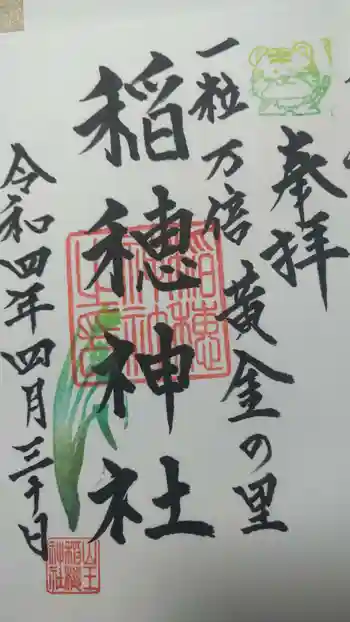 奉拝
一粒万倍 黄金の里
稲穂神社
稲穂神社之印
令和四年四月三十日
山王稲穂神社